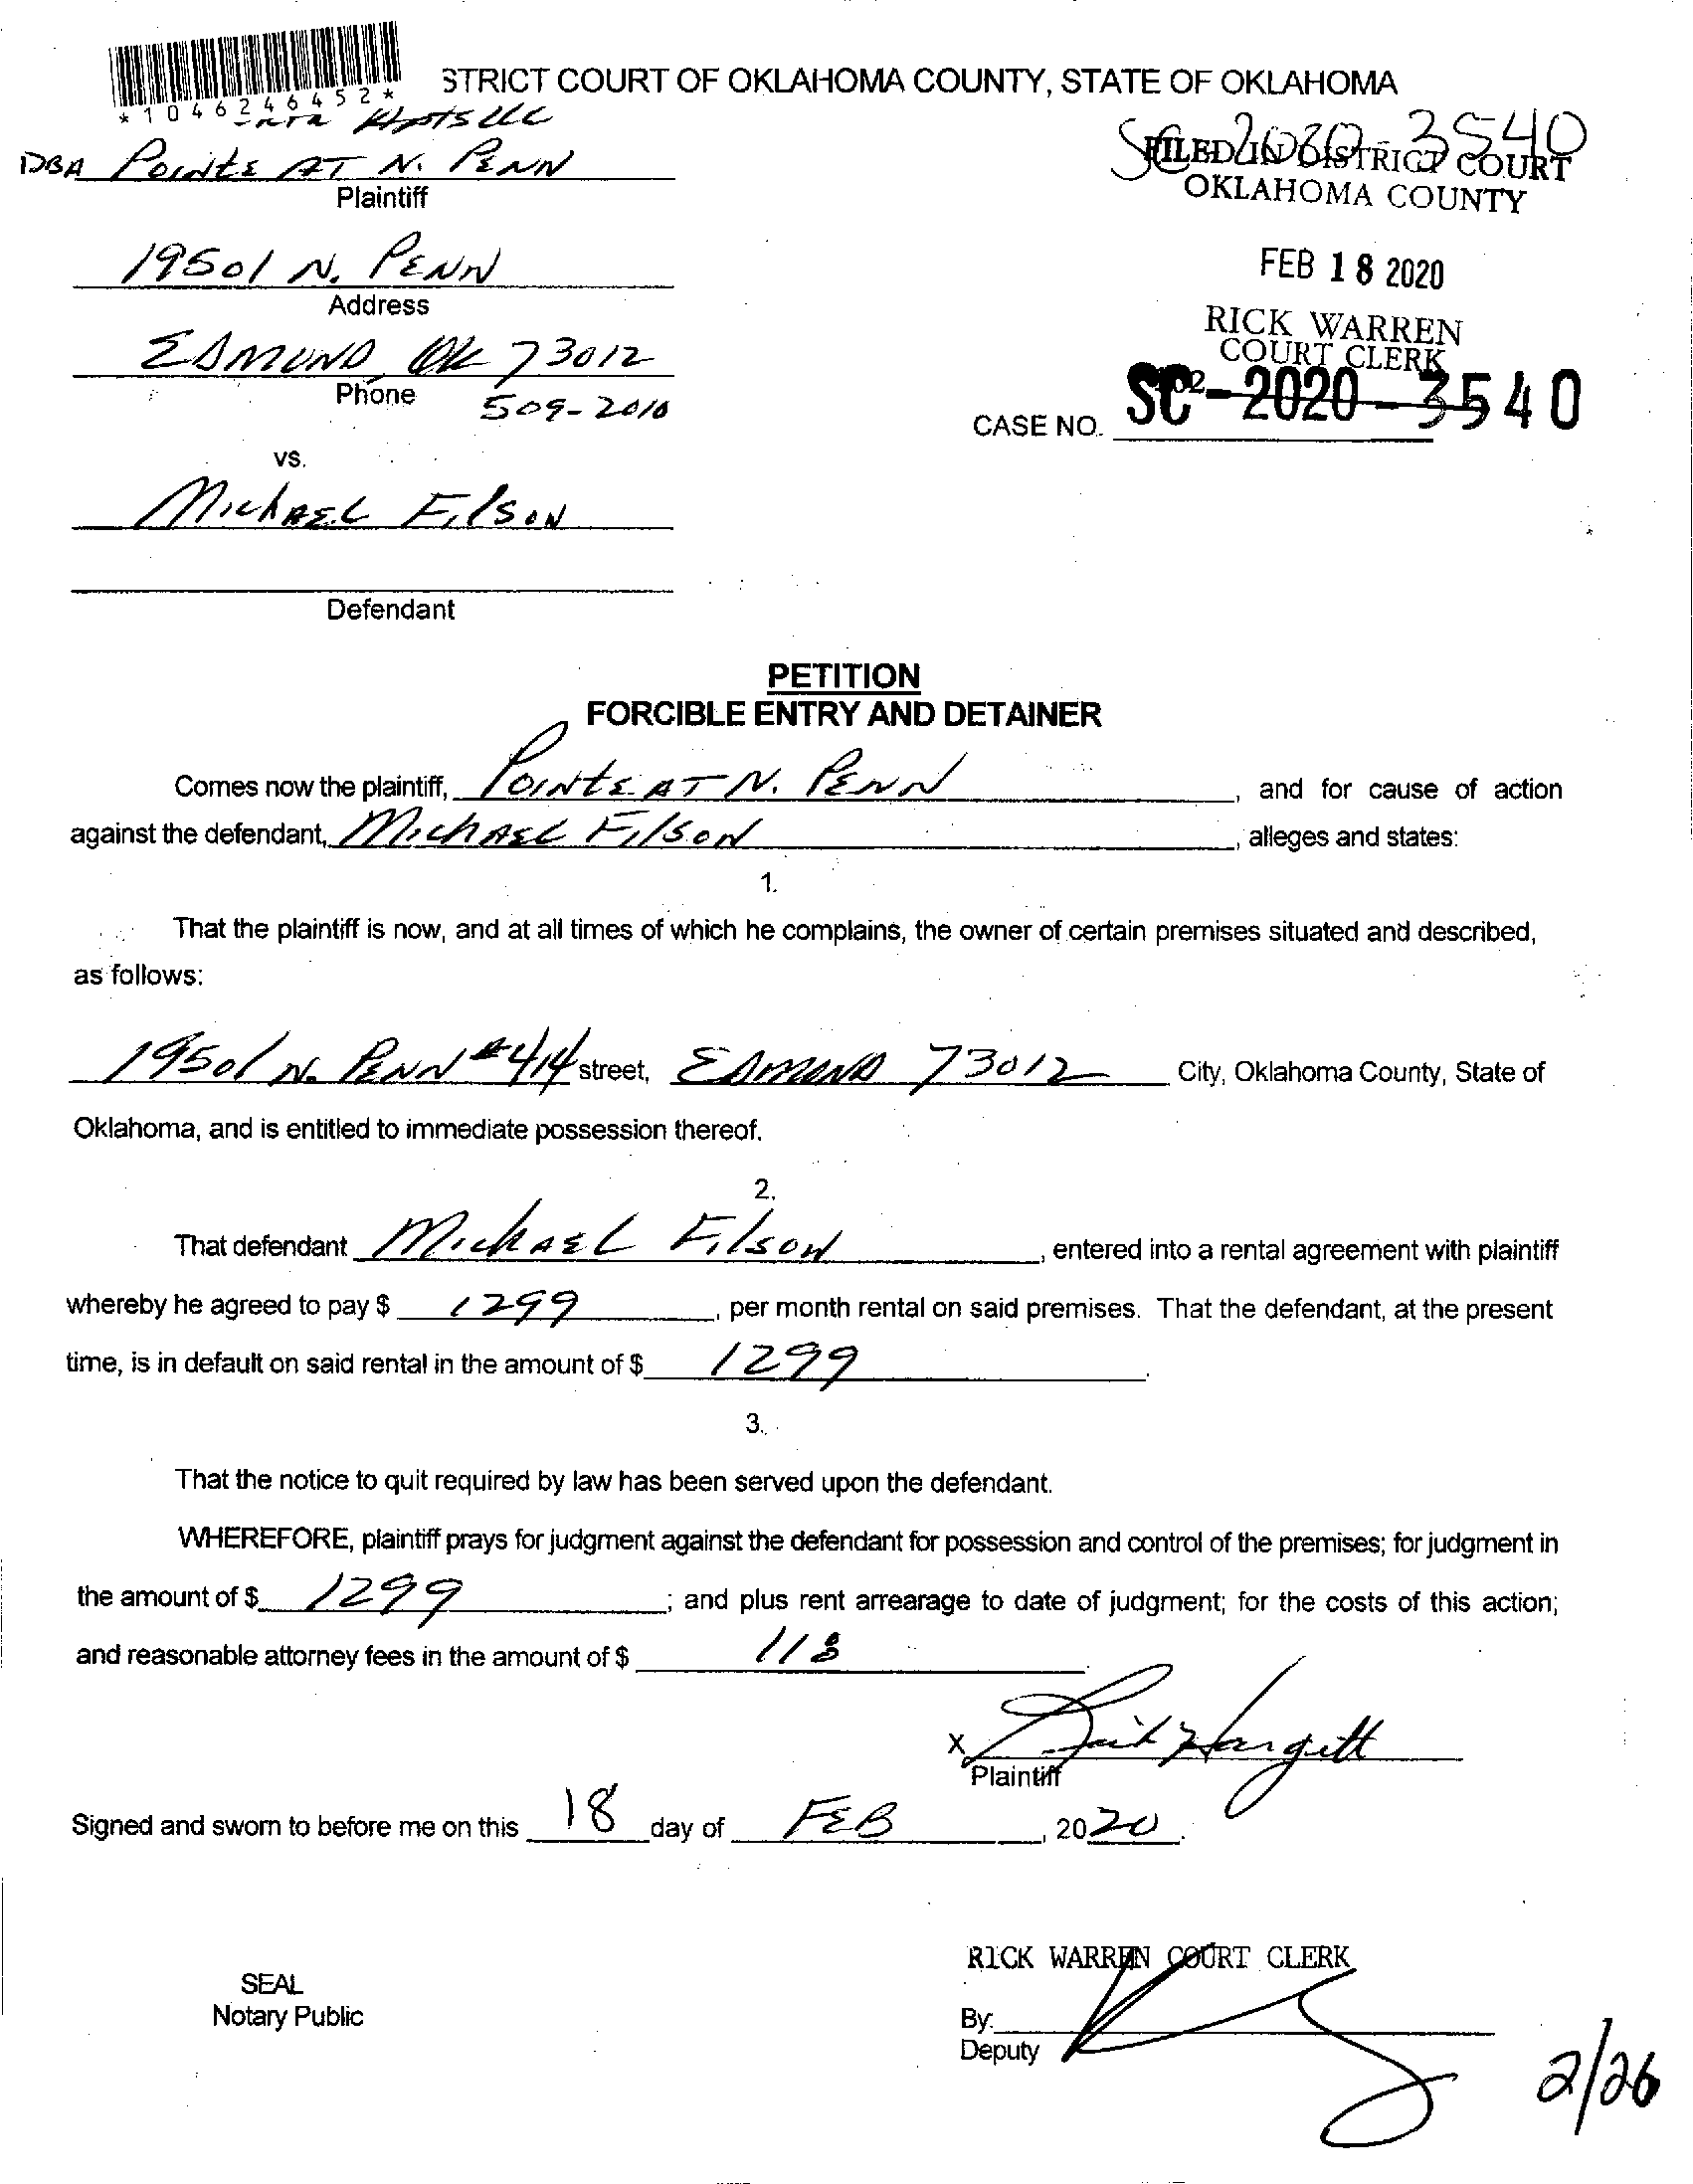 *1046246452*
STRICT COURT OF OKLAHOMA COUNTY, STATE OF OKLAHOMA
LLC
SC-2020-3540
DBA POINTE AT N. PENN
FILED IN DISTRICT COURT
Plaintiff
OKLAHOMA COUNTY
19501 N. PENN
FEB 18 2020
Address
RICK WARREN
EDMOND, OK 73012
COURT CLERK
Phone
509-2010
CASE NO. SC-2020-3540
vs.
MICHAEL FILSON
Defendant
PETITION
FORCIBLE ENTRY AND DETAINER
Comes now the plaintiff, POINTE AT N. PENN, and for cause of action
against the defendant, MICHAEL FILSON, alleges and states:
1.
That the plaintiff is now, and at all times of which he complains, the owner of certain premises situated and described,
as follows:
19501 N. PENN #414 street, EDMOND 73012 City, Oklahoma County, State of
Oklahoma, and is entitled to immediate possession thereof.
2.
That defendant MICHAEL FILSON, entered into a rental agreement with plaintiff
whereby he agreed to pay $ 1299, per month rental on said premises. That the defendant, at the present
time, is in default on said rental in the amount of $ 1299.
3.
That the notice to quit required by law has been served upon the defendant.
WHEREFORE, plaintiff prays for judgment against the defendant for possession and control of the premises; for judgment in
the amount of $ 1299; and plus rent arrearage to date of judgment; for the costs of this action;
and reasonable attorney fees in the amount of $ 118
X Hargett
Plaintiff
Signed and sworn to before me on this 18 day of FEB, 2020.
RICK WARREN COURT CLERK
SEAL
Notary Public
By:
Deputy
2/26